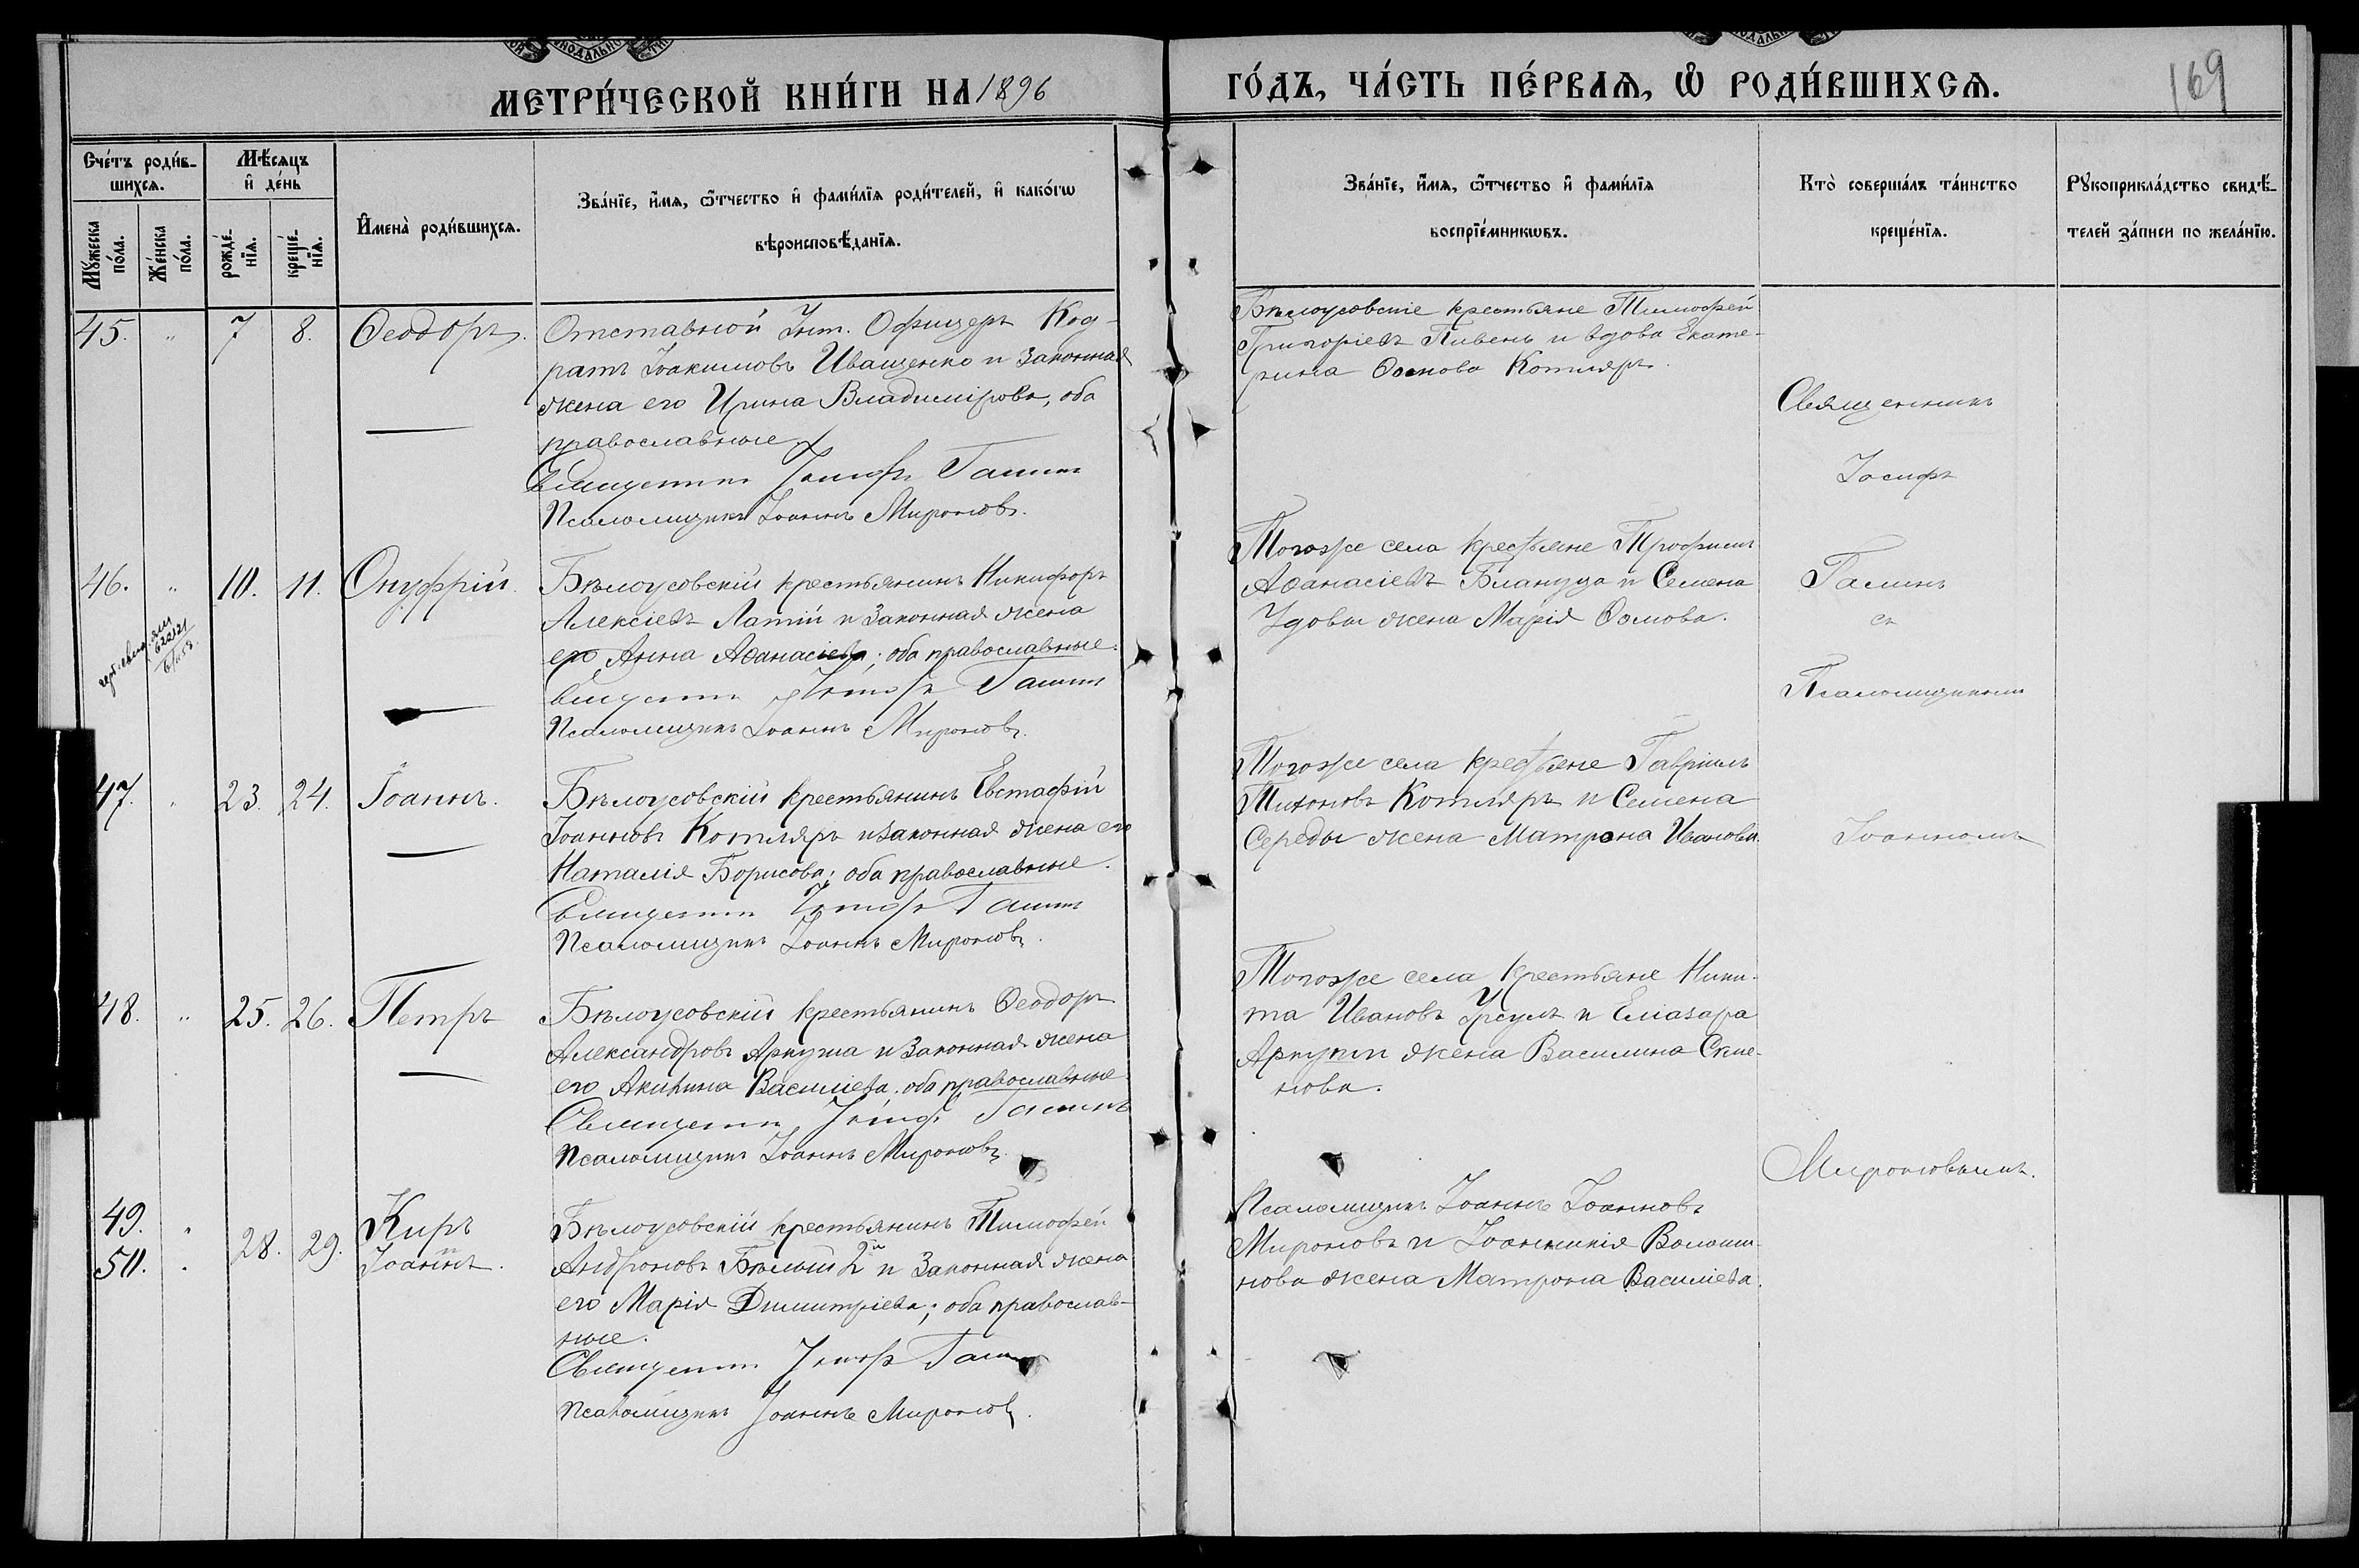 МЕТРИ́ЧЕСКОЙ КНИ́ГИ НА 1896
ГО́ДЪ, ЧА́СТЬ ПЕ́РВАѦ, Ѡ҆ РОДИ́ВШИХСѦ.
169
Сче́тъ роди́в-
шихсѧ.
Мꙋ́жеска
по́ла.
Же́нска
по́ла.
Мѣ́сѧцъ
и҆ де́нь
рожде́-
нїѧ.
креще́-
нїѧ.
И҆мена̀ роди́вшихсѧ.
Зва́нїе, и҆́мѧ, ѻ҆́тчество и҆ фами́лїѧ роди́телей, и҆ како́гѡ
вѣроисповѣ́данїѧ.
Зва́нїе, и҆́мѧ, ѻ҆́тчество и҆ фами́лїѧ
воспрїе́мникѡвъ.
Кто̀ соверша́лъ та́инство
креще́нїѧ.
Рꙋкоприкла́дство свидѣ́-
телей за́писи по жела́нїю.
45. " 7 8. Ѳеодоръ.
Отставной Унт. Офицеръ Код-
ратъ Іоакимовъ Иващенко и законная
жена его Ирина Владимірова, оба
православные
Священникъ Іосифъ Галинъ
Псаломщикъ Іоаннъ Мироновъ.
Бѣлоусовскіе крестьяне Тимофей
Григоріевъ Пивень и вдова Екате-
рина Ѳомова Котляръ.
46. " 10. 11. Онуфрій.
Бѣлоусовскій крестьянинъ Никифоръ
Алексіевъ Латій и законная жена
его Анна Аѳанасіева; оба православные.
Священникъ Іосифъ Галинъ
Псаломщикъ Іоаннъ Мироновъ.
Тогоже села крестьяне Трофимъ
Аѳанасіевъ Блануца и Семена
Удовы жена Марія Ѳомова.
47. " 23. 24. Іоаннъ.
Бѣлоусовскій крестьянинъ Евстафій
Іоанновъ Котляръ и законная жена его
Наталія Борисова; оба православные.
Священникъ Іосифъ Галинъ
Псаломщикъ Іоаннъ Мироновъ.
Тогоже села крестьяне Гавріилъ
Тихоновъ Котляръ и Семена
Середы жена Матрона Иванова.
48. " 25. 26. Петръ
Бѣлоусовскій крестьянинъ Ѳеодоръ
Александровъ Аркуша и законная жена
его Акилина Василіева. оба православные.
Священникъ Іосифъ Галинъ
Псаломщикъ Іоаннъ Мироновъ.
Тогоже села крестьяне Ники-
та Ивановъ Урсулъ и Еліазара
жена Василина
нова.
49. " Киръ
50. " 28. 29. и Іоаннъ.
Бѣлоусовскій крестьянинъ Тимофей
Андроновъ Бѣлый 2й и законная жена
его Марія Димитріева; оба православ-
ные.
Священникъ Іосифъ Галинъ
Псаломщикъ Іоаннъ Мироновъ.
Псаломщикъ Іоаннъ Іоанновъ
Мироновъ и Іоанникія Волоши-
нова жена Матрона Василіева.
Священникъ
Іосифъ
Галинъ
съ
Псаломщикомъ
Іоанномъ
Мироновымъ.